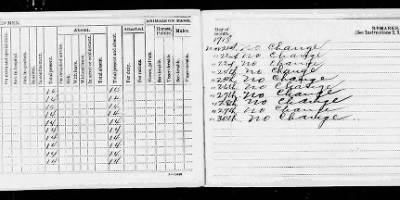 ED MEN.
ANIMALS ON HAND.
Absent.
Attached.
Horses, Public.
Mules.
Sick.
With leave.
Without leave.
In arrest or confinement.
Total absent.
Total present and absent.
For duty.
Serviceable.
Unserviceable.
Serviceable.
Unserviceable.
14 14
14 14
14 14
14 14
14 14
14 14
14 14
14 14
14 14
14 14
Day of month.
REMARKS
(See Instructions 2, 3
1918
Nov 21st No Change
" 22nd No Change
" No Change
" 24th No Change
" 25th No Change
" 26th No Change
" 27th No Change
" 28th No Change
" 29th No Change
" 30th No Change